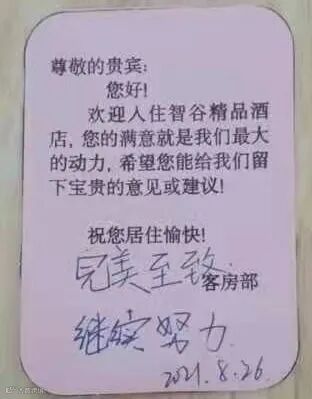 尊敬的贵宾:
您好!
欢迎入住智谷精品酒
店, 您的满意就是我们最大
的动力, 希望您能给我们留
下宝贵的意见或建议!
祝您居住愉快!
完美至致
客房部
继续努力.
2021.8.26.